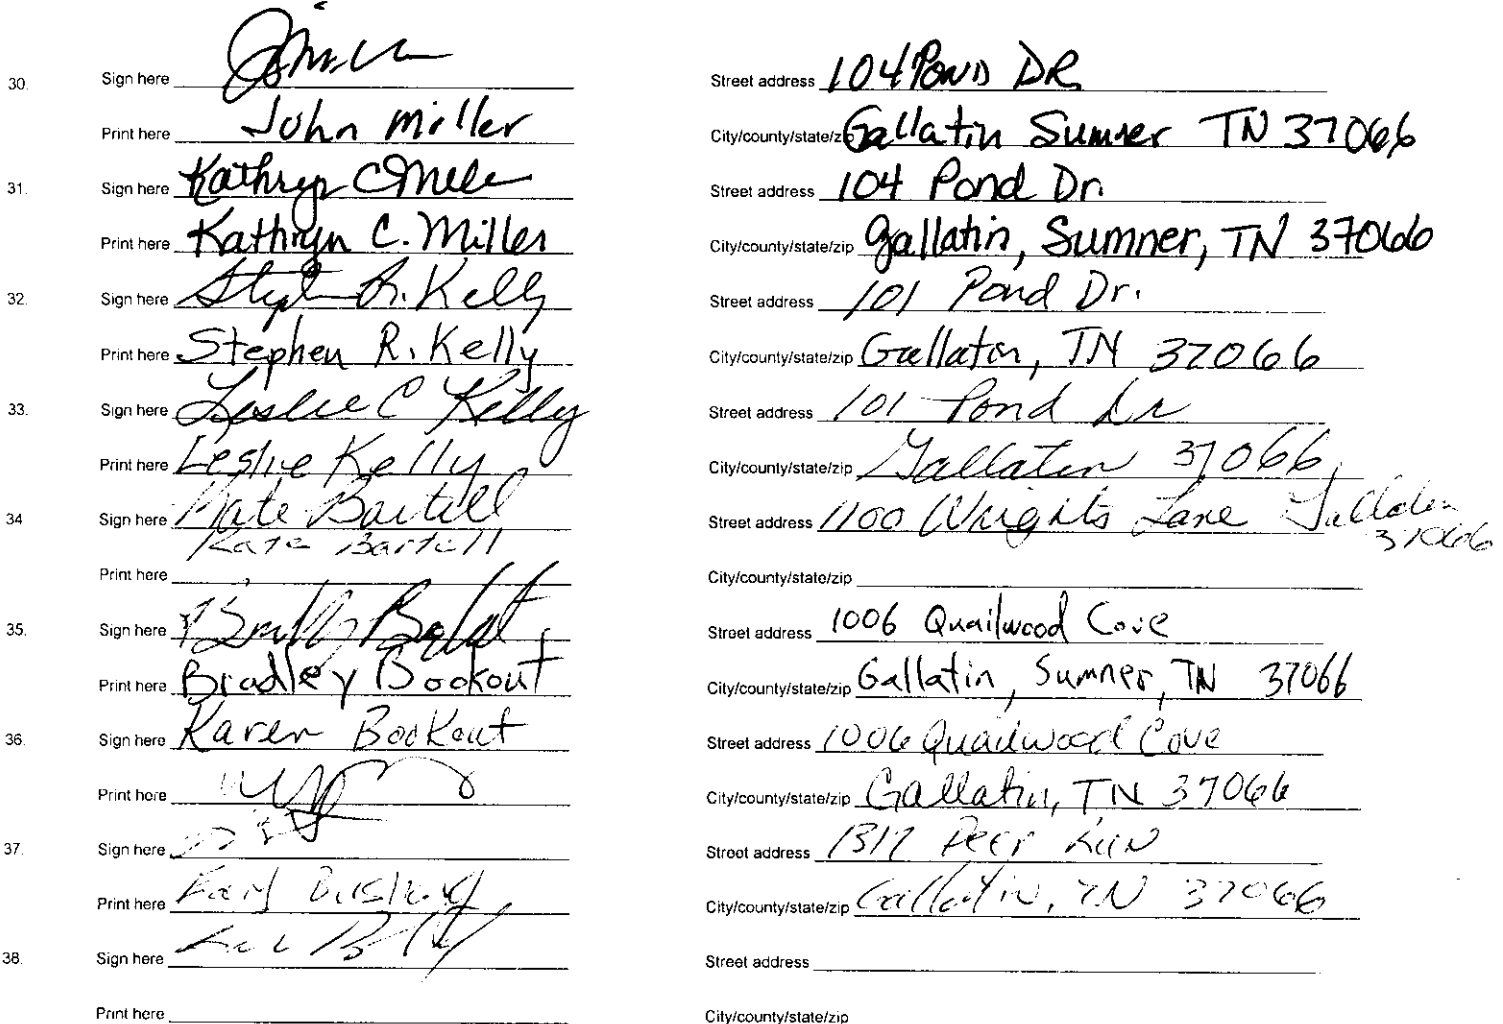 30. Sign here Street address 104 Pond DR
Print here John Miller City/county/state/zip Gallatin Sumner TN 37066
31. Sign here Kathryn C Miller Street address 104 Pond Dr.
Print here Kathryn C. Miller City/county/state/zip Gallatin, Sumner, TN 37066
32. Sign here Stephen R. Kelly Street address 101 Pond Dr.
Print here Stephen R. Kelly City/county/state/zip Gallatin, TN 37066
33. Sign here Leslie C Kelly Street address 101 Pond Dr
Print here Leslie Kelly City/county/state/zip Gallatin 37066
34 Sign here Kate Bartell Street address 1100 Wrights Lane Gallatin 37066
Kate Bartell
Print here City/county/state/zip
35. Sign here Street address 1006 Quailwood Cove
Print here Bradley Bookout City/county/state/zip Gallatin, Sumner, TN 37066
36. Sign here Karen Bookout Street address 1006 Quailwood Cove
Print here City/county/state/zip Gallatin, TN 37066
37. Sign here Street address 1317 Deer Run
Print here City/county/state/zip Gallatin, TN 37066
38. Sign here Street address
Print here City/county/state/zip